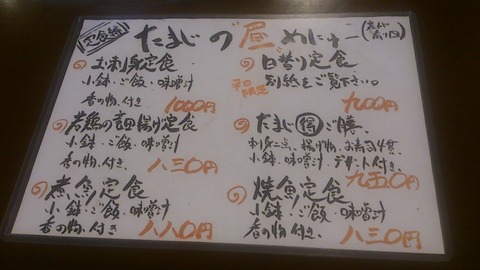 定食編
たまじの昼めにゅー
お刺身定食
小鉢・ご飯・味噌汁
香の物、付き
1000円
若鶏の竜田揚げ定食
小鉢、ご飯、味噌汁
香の物、付き、
八三〇円
煮魚定食
小鉢・ご飯・味噌汁
香の物、付き
八八〇円
日替り定食
平日限定
別紙をご覧下さい。
九〇〇円
たまじ得ご膳、
刺身二点、揚げ物、お寿司4貫
小鉢、味噌汁、デザート付き。
九五〇円
焼魚定食
小鉢・ご飯・味噌汁
香の物、付き
八三〇円